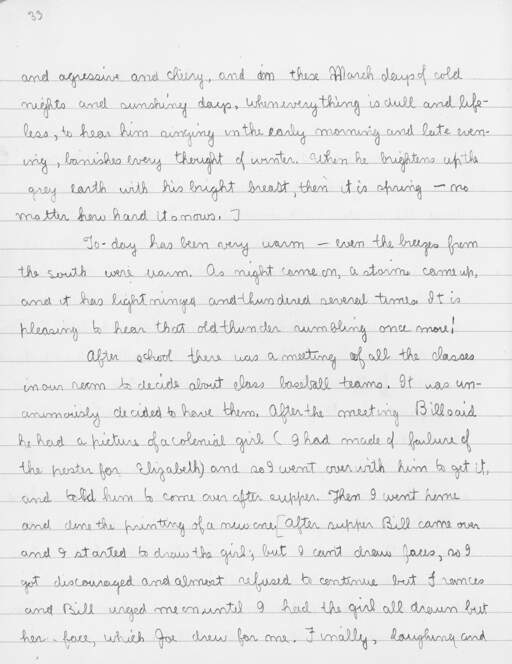 39
and agressive and chiery, and in these March days of cold
nights and sunshiny days, when everything is dull and life-
less, to hear him singing in the early morning and late even-
ing, banishes every thought of winter. When he brightens up the
grey earth with his bright breast, then it is spring — no
matter how hard it snows. ]
To-day has been very warm — even the breezes from
the south were warm. As night came on, a storm came up,
and it has lightninged and thundered several times. It is
pleasing to hear that old thunder rumbling once more!
After school there was a meeting of all the classes
in our room to decide about class baseball teams. It was un-
anumously decided to have them. After the meeting Bill said
he had a picture of a colonial girl ( I had made a failure of
the poster for Elizabeth) and so I went over with him to get it,
and told him to come over after supper. Then I went home
and done the printing of a new one. [ After supper Bill came over
and I started to draw the girl; but I can't draw faces, so I
got discouraged and almost refused to continue but Frances
and Bill urged me on until I had the girl all drawn but
her face, which Joe drew for me. Finally, laughing and